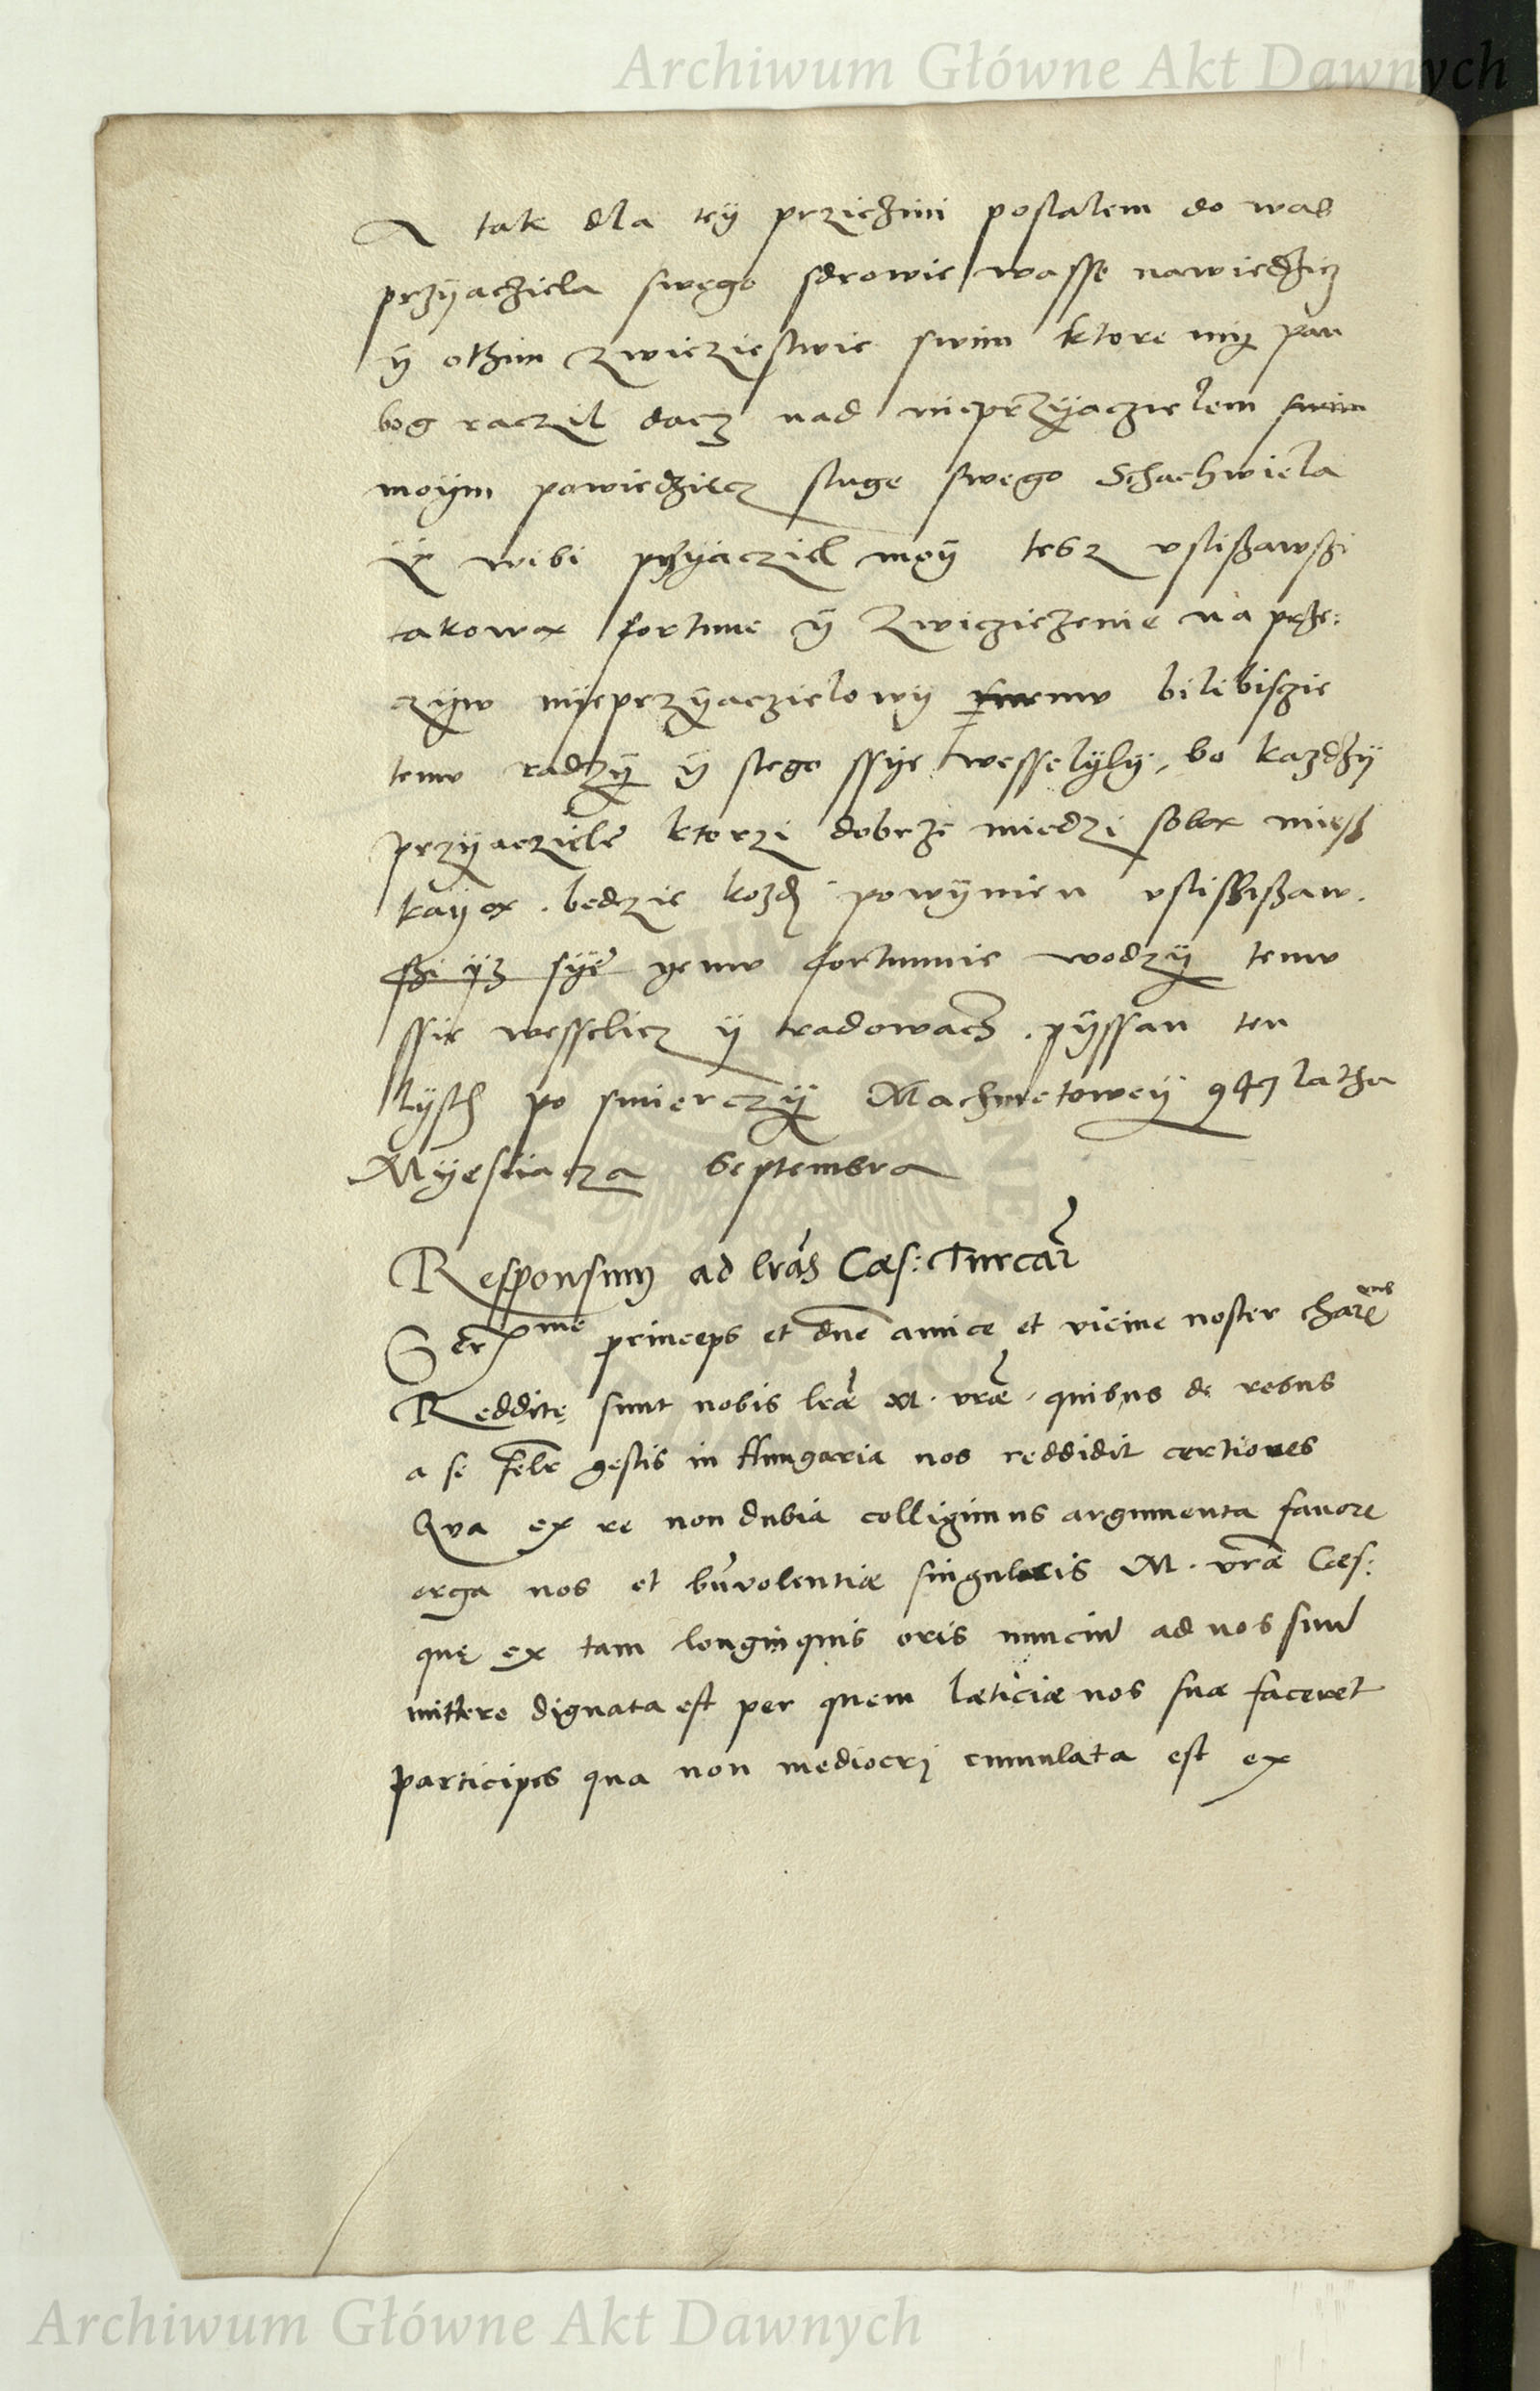 Archiwum Główne Akt Dawnych
A tak dla tÿ przichini poslalem do was
przÿachiela swego sdrowie wasse nawiedzicz
ÿ othim zwiciestwie swim ktore mÿ pan
bog raczil dacz nad nieprzÿaczielem swim
moÿm powiedziecz sluge swego Schachwiela
wibi przÿacziel moÿ tesz uslißawßi
takowa fortune ÿ Zwicziezenie na prze:
cziw nÿeprzÿaczielowÿ swemu bilibiszie
temu radzÿ ÿ stego ssÿe wesselÿlÿ, bo kazdzÿ
przÿacziele ktorzi dobrze miedzi soba mieß
kaÿa . bedzie kozdi powÿnien uslissißaw.
ßi ÿz sÿe gemu fortunnie wodzÿ temu
ssie wesselicz ÿ radowacz . pÿssan ten
lÿsth po smierczÿ Machmetoweÿ 947 latha
Mÿesiacza Septembra
Responsum ad lras Caes: Turcar
Serme princeps et dne amice et vicine noster charme
Reddite sunt nobis lrae M. vrae, quibus de rebus
a se felr gestis in Hungaria nos reddidit certiores
Qua ex re non dubia colligimus argumenta favore
erga nos et bnvolentiae singularis M. vrae Caes:
que ex tam longinquis oris nunciu ad nos suu
mittere dignata est per quem laeticiae nos suae faceret
participes qua non mediocri cumulata est ex
Archiwum Główne Akt Dawnych